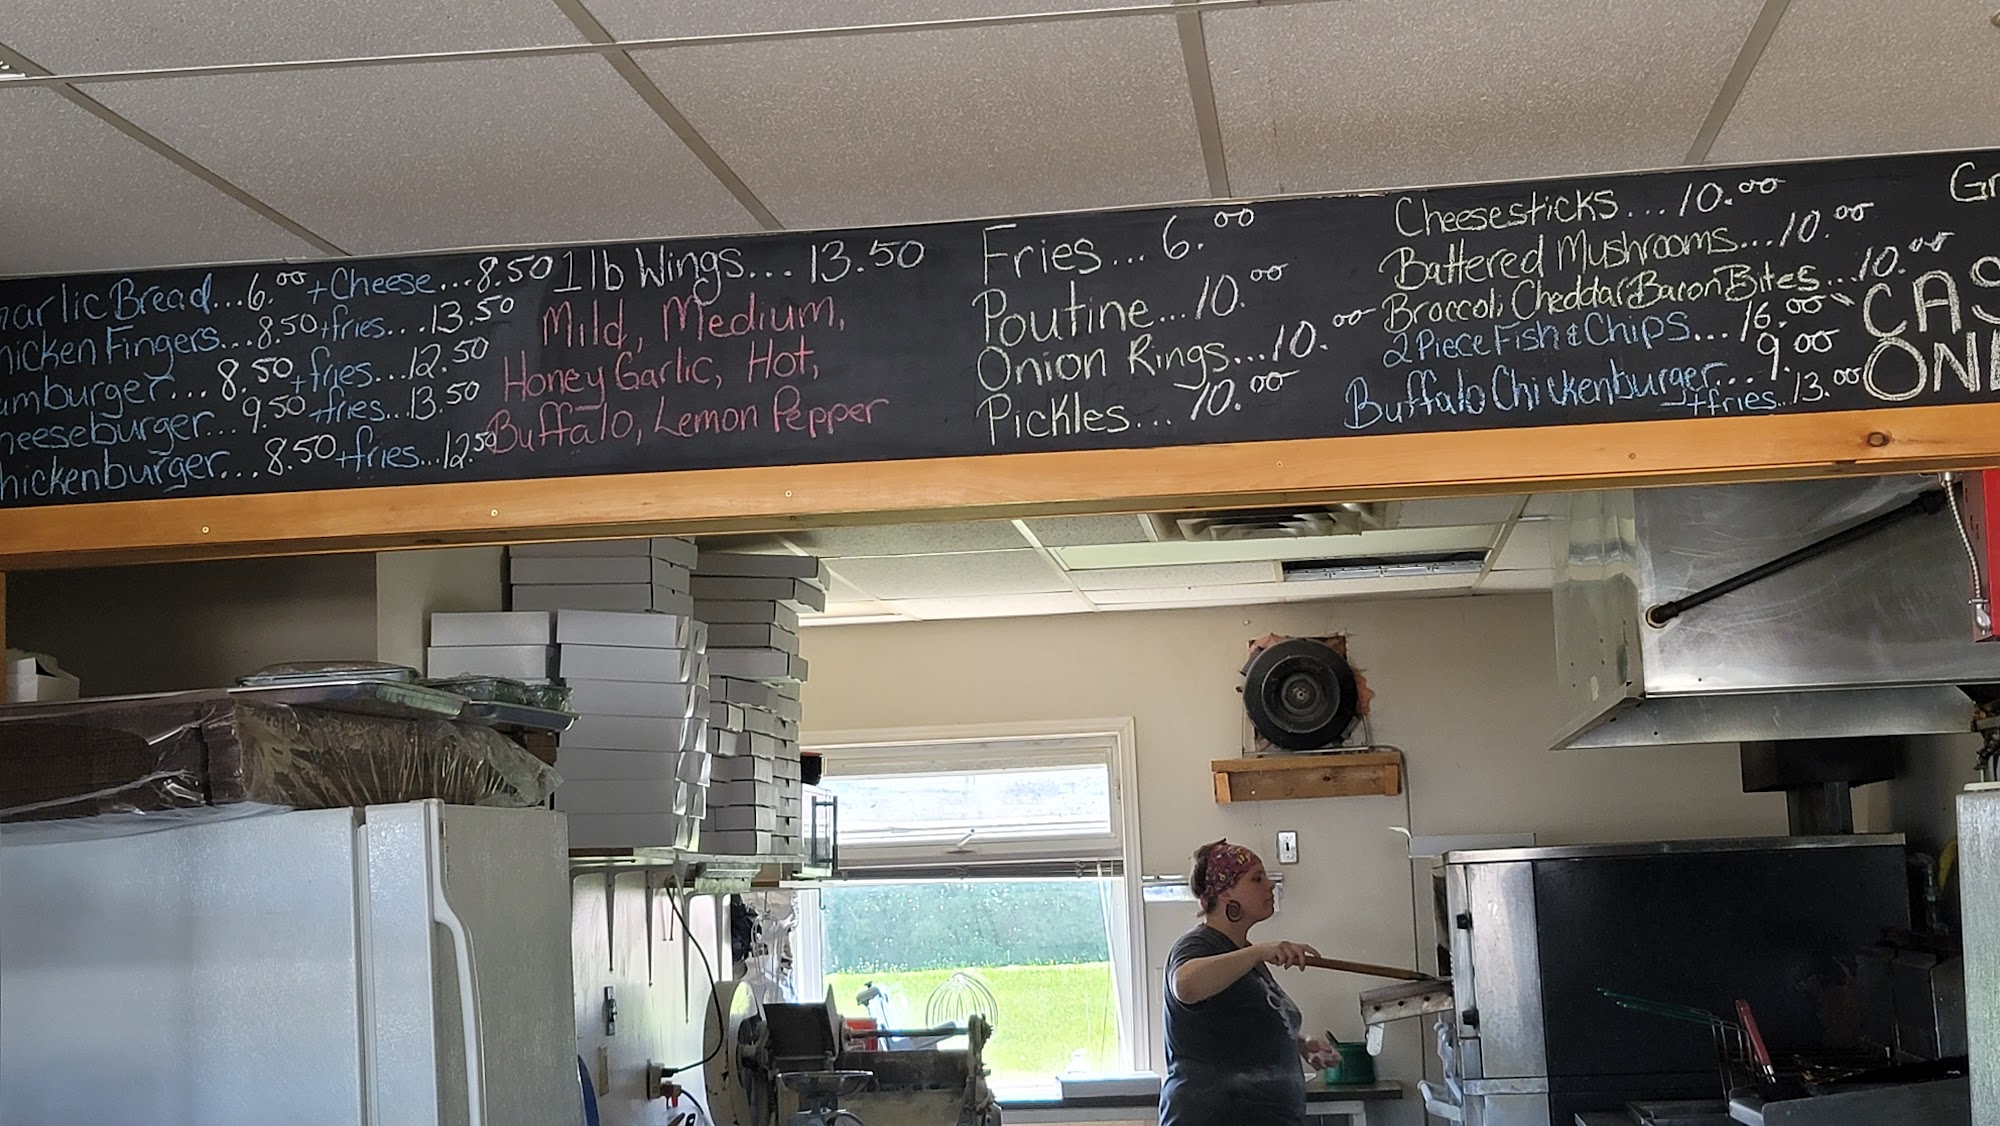 Garlic Bread...6.00 + Cheese...8.50
Chicken Fingers...8.50 + fries...13.50
Hamburger...8.50 + fries...12.50
Cheeseburger...9.50 + fries...13.50
Chickenburger...8.50 + fries...12.50
1 lb Wings...13.50
Mild, Medium,
Honey Garlic, Hot,
Buffalo, Lemon Pepper
Fries...6.00
Poutine...10.00
Onion Rings...10.00
Pickles...10.00
Cheesesticks...10.00
Battered Mushrooms...10.00
Broccoli Cheddar Bacon Bites...10.00
2 Piece Fish & Chips...16.00
Buffalo Chickenburger...9.00
+ fries...13.00